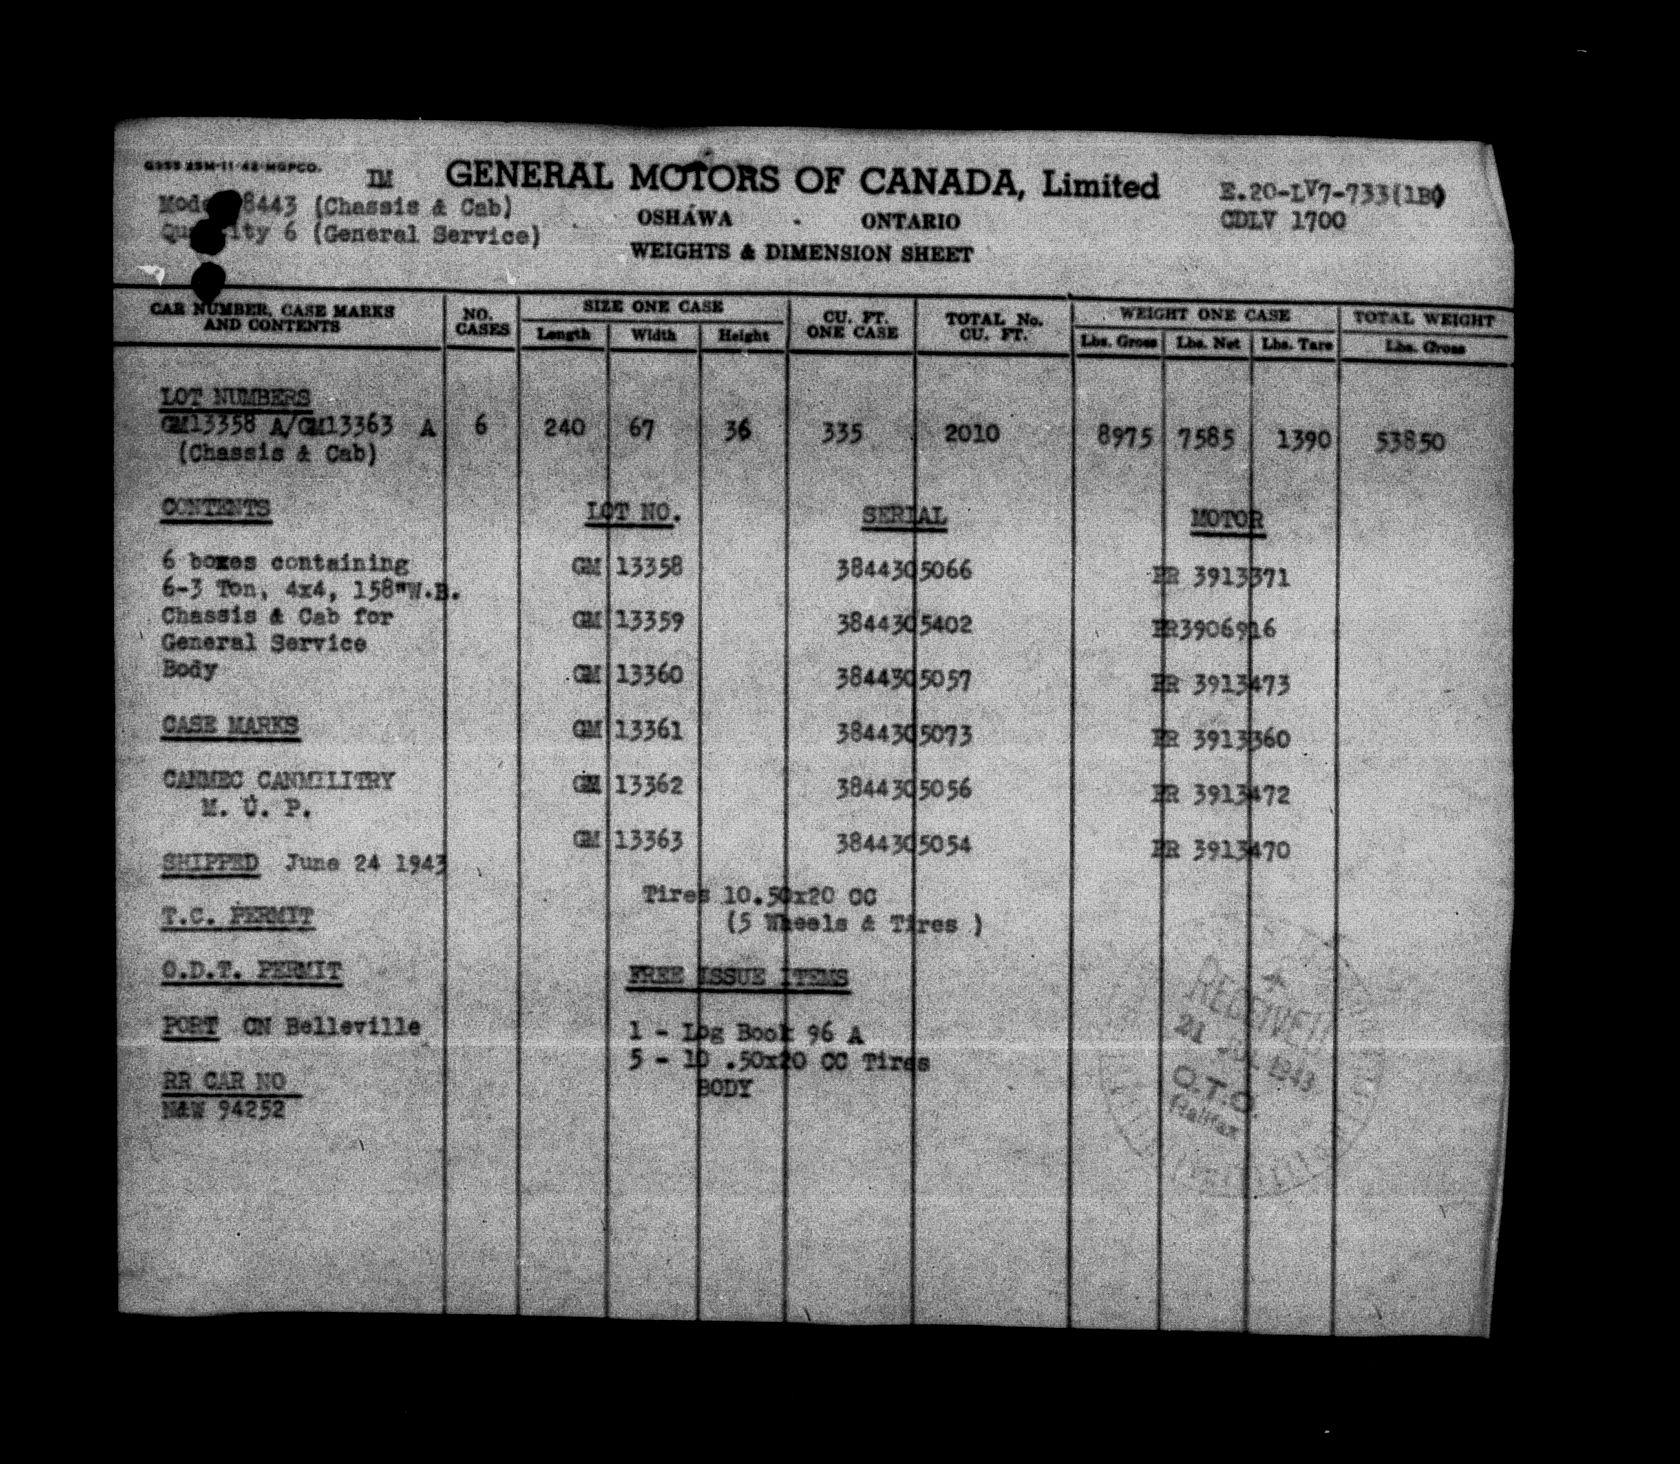 G355 25M-11-42-MGPCO.
IM GENERAL MOTORS OF CANADA, Limited E.20-LV7-733(1B)
8443 (Chassis & Cab) OSHAWA - ONTARIO CDLV 1700
6 (General Service)
WEIGHTS & DIMENSION SHEET
CAR NUMBER, CASE MARKS AND CONTENTS NO. CASES SIZE ONE CASE Length Width Height CU. FT. ONE CASE TOTAL No. CU. FT. WEIGHT ONE CASE Lbs. Gross Lbs. Net Lbs. Tare TOTAL WEIGHT Lbs. Gross
LOT NUMBERS
GM13358 A/GM13363 A 6 240 67 36 335 2010 8975 7585 1390 53850
(Chassis & Cab)
CONTENTS LOT NO. SERIAL MOTOR
6 boxes containing GM 13358 3844305066 PR 3913371
6-3 Ton, 4x4, 158"W.B.
Chassis & Cab for GM 13359 3844305402 PR3906916
General Service
Body GM 13360 3844305057 PR 3913473
CASE MARKS GM 13361 3844305073 PR 3913360
CANMEC CANMILITRY GM 13362 3844305056 PR 3913472
M. U. P.
GM 13363 3844305054 PR 3913470
SHIPPED June 24 1943
Tires 10.50x20 CC
T.C. PERMIT (5 Wheels & Tires )
O.D.T. PERMIT FREE ISSUE ITEMS
PORT CN Belleville 1 - Log Book 96 A
5 - 10 .50x20 CC Tires
RR CAR NO BODY
N&W 94252
RECEIVED
21 JUL 1943
O.T.O.
Halifax